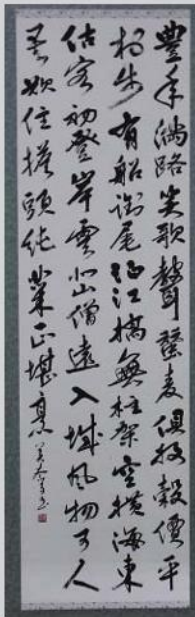 豐年満路笑歌聲蠶麦俱收穀價平
村步有船銜尾泊江橋無柱架空横海東
估客初登岸雲北山僧遠入城風物可人
吾欲住擔頭純菜正堪烹